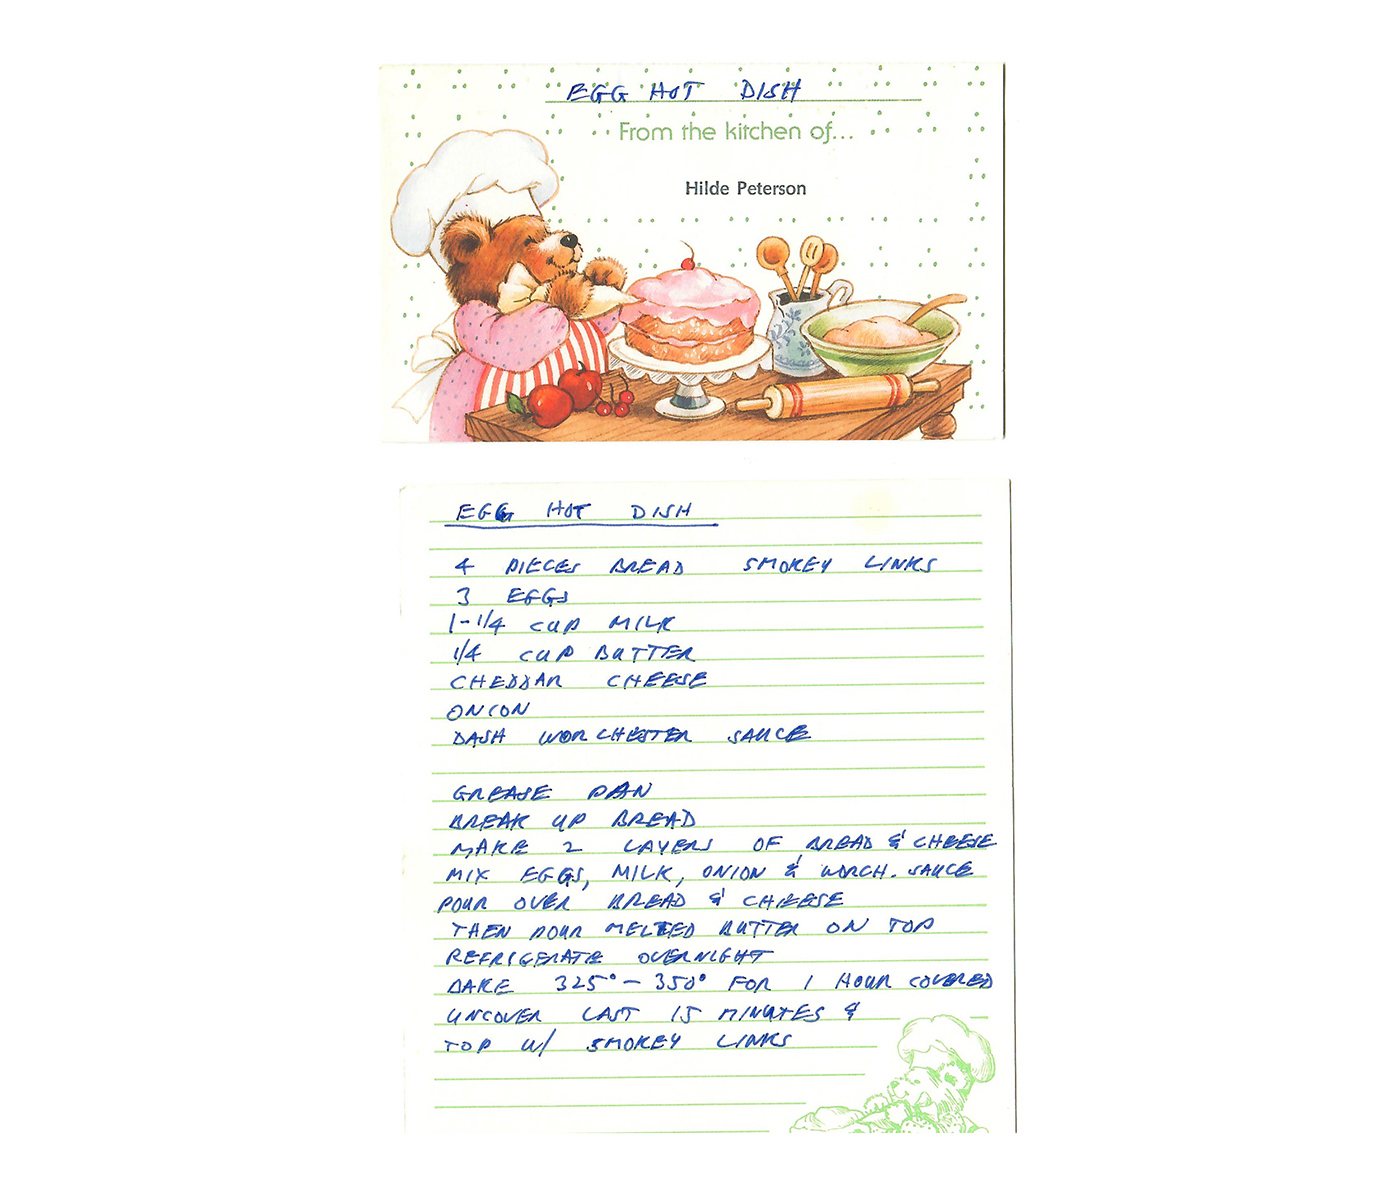 EGG HOT DISH
From the kitchen of...
Hilde Peterson
EGG HOT DISH
4 PIECES BREAD SMOKEY LINKS
3 EGGS
1-1/4 CUP MILK
1/4 CUP BUTTER
CHEDDAR CHEESE
ONION
DASH WORCHESTER SAUCE
GREASE PAN
BREAK UP BREAD
MAKE 2 LAYERS OF BREAD & CHEESE
MIX EGGS, MILK, ONION & WORCH. SAUCE
POUR OVER BREAD & CHEESE
THEN POUR MELTED BUTTER ON TOP
REFRIGERATE OVERNIGHT
BAKE 325° - 350° FOR 1 HOUR COVERED
UNCOVER LAST 15 MINUTES &
TOP W/ SMOKEY LINKS